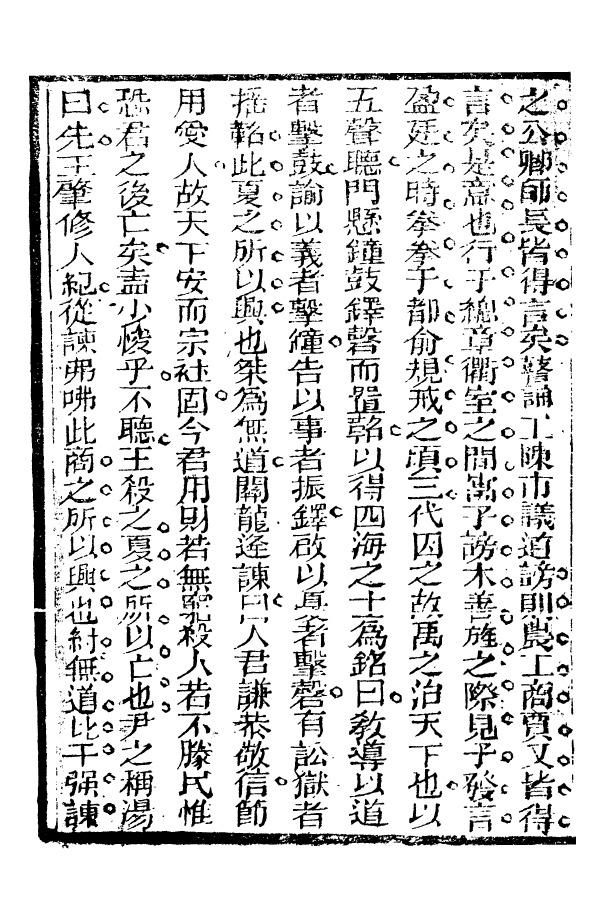 之公卿師長皆得言矣瞽諭工陳市議道謗則農工商賈又皆得
言矣是意也行于總章衢室之間寓于謗木善旌之際見于發言
盈廷之時拳拳于都俞規戒之頃三代因之故禹之治天下也以
五聲聽門懸鐘鼓鐸磬而置鞀以得四海之士為銘曰教導以道
者擊鼓諭以義者擊鐘告以事者振鐸啟以憂者擊磬有訟獄者
搖鞀此夏之所以興也桀為無道關龍逄諫曰人君謙恭敬信節
用愛人故天下安而宗社固今君用財若無窮殺人若不勝民惟
恐君之後亡矣盍少悛乎不聽王殺之夏之所以亡也尹之稱湯
曰先王肇修人紀從諫弗咈此商之所以興也紂無道比干强諫